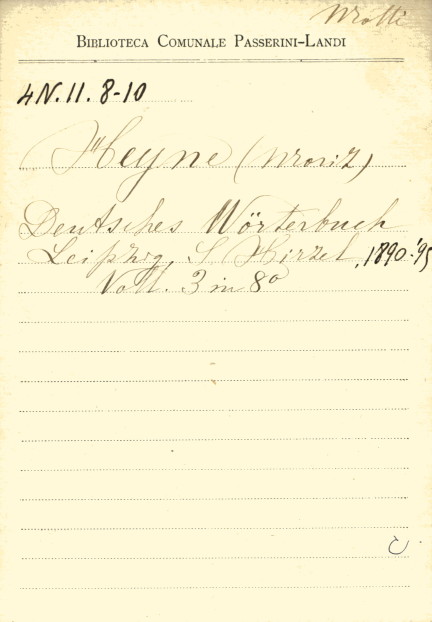 BIBLIOTECA COMUNALE PASSERINI-LANDI
4N.11.8-10
Heyne (Moriz)
Deutsches Wörterbuch
Leipzig, S Hirzel, 1890-'95
Voll. 3 in 8°
C